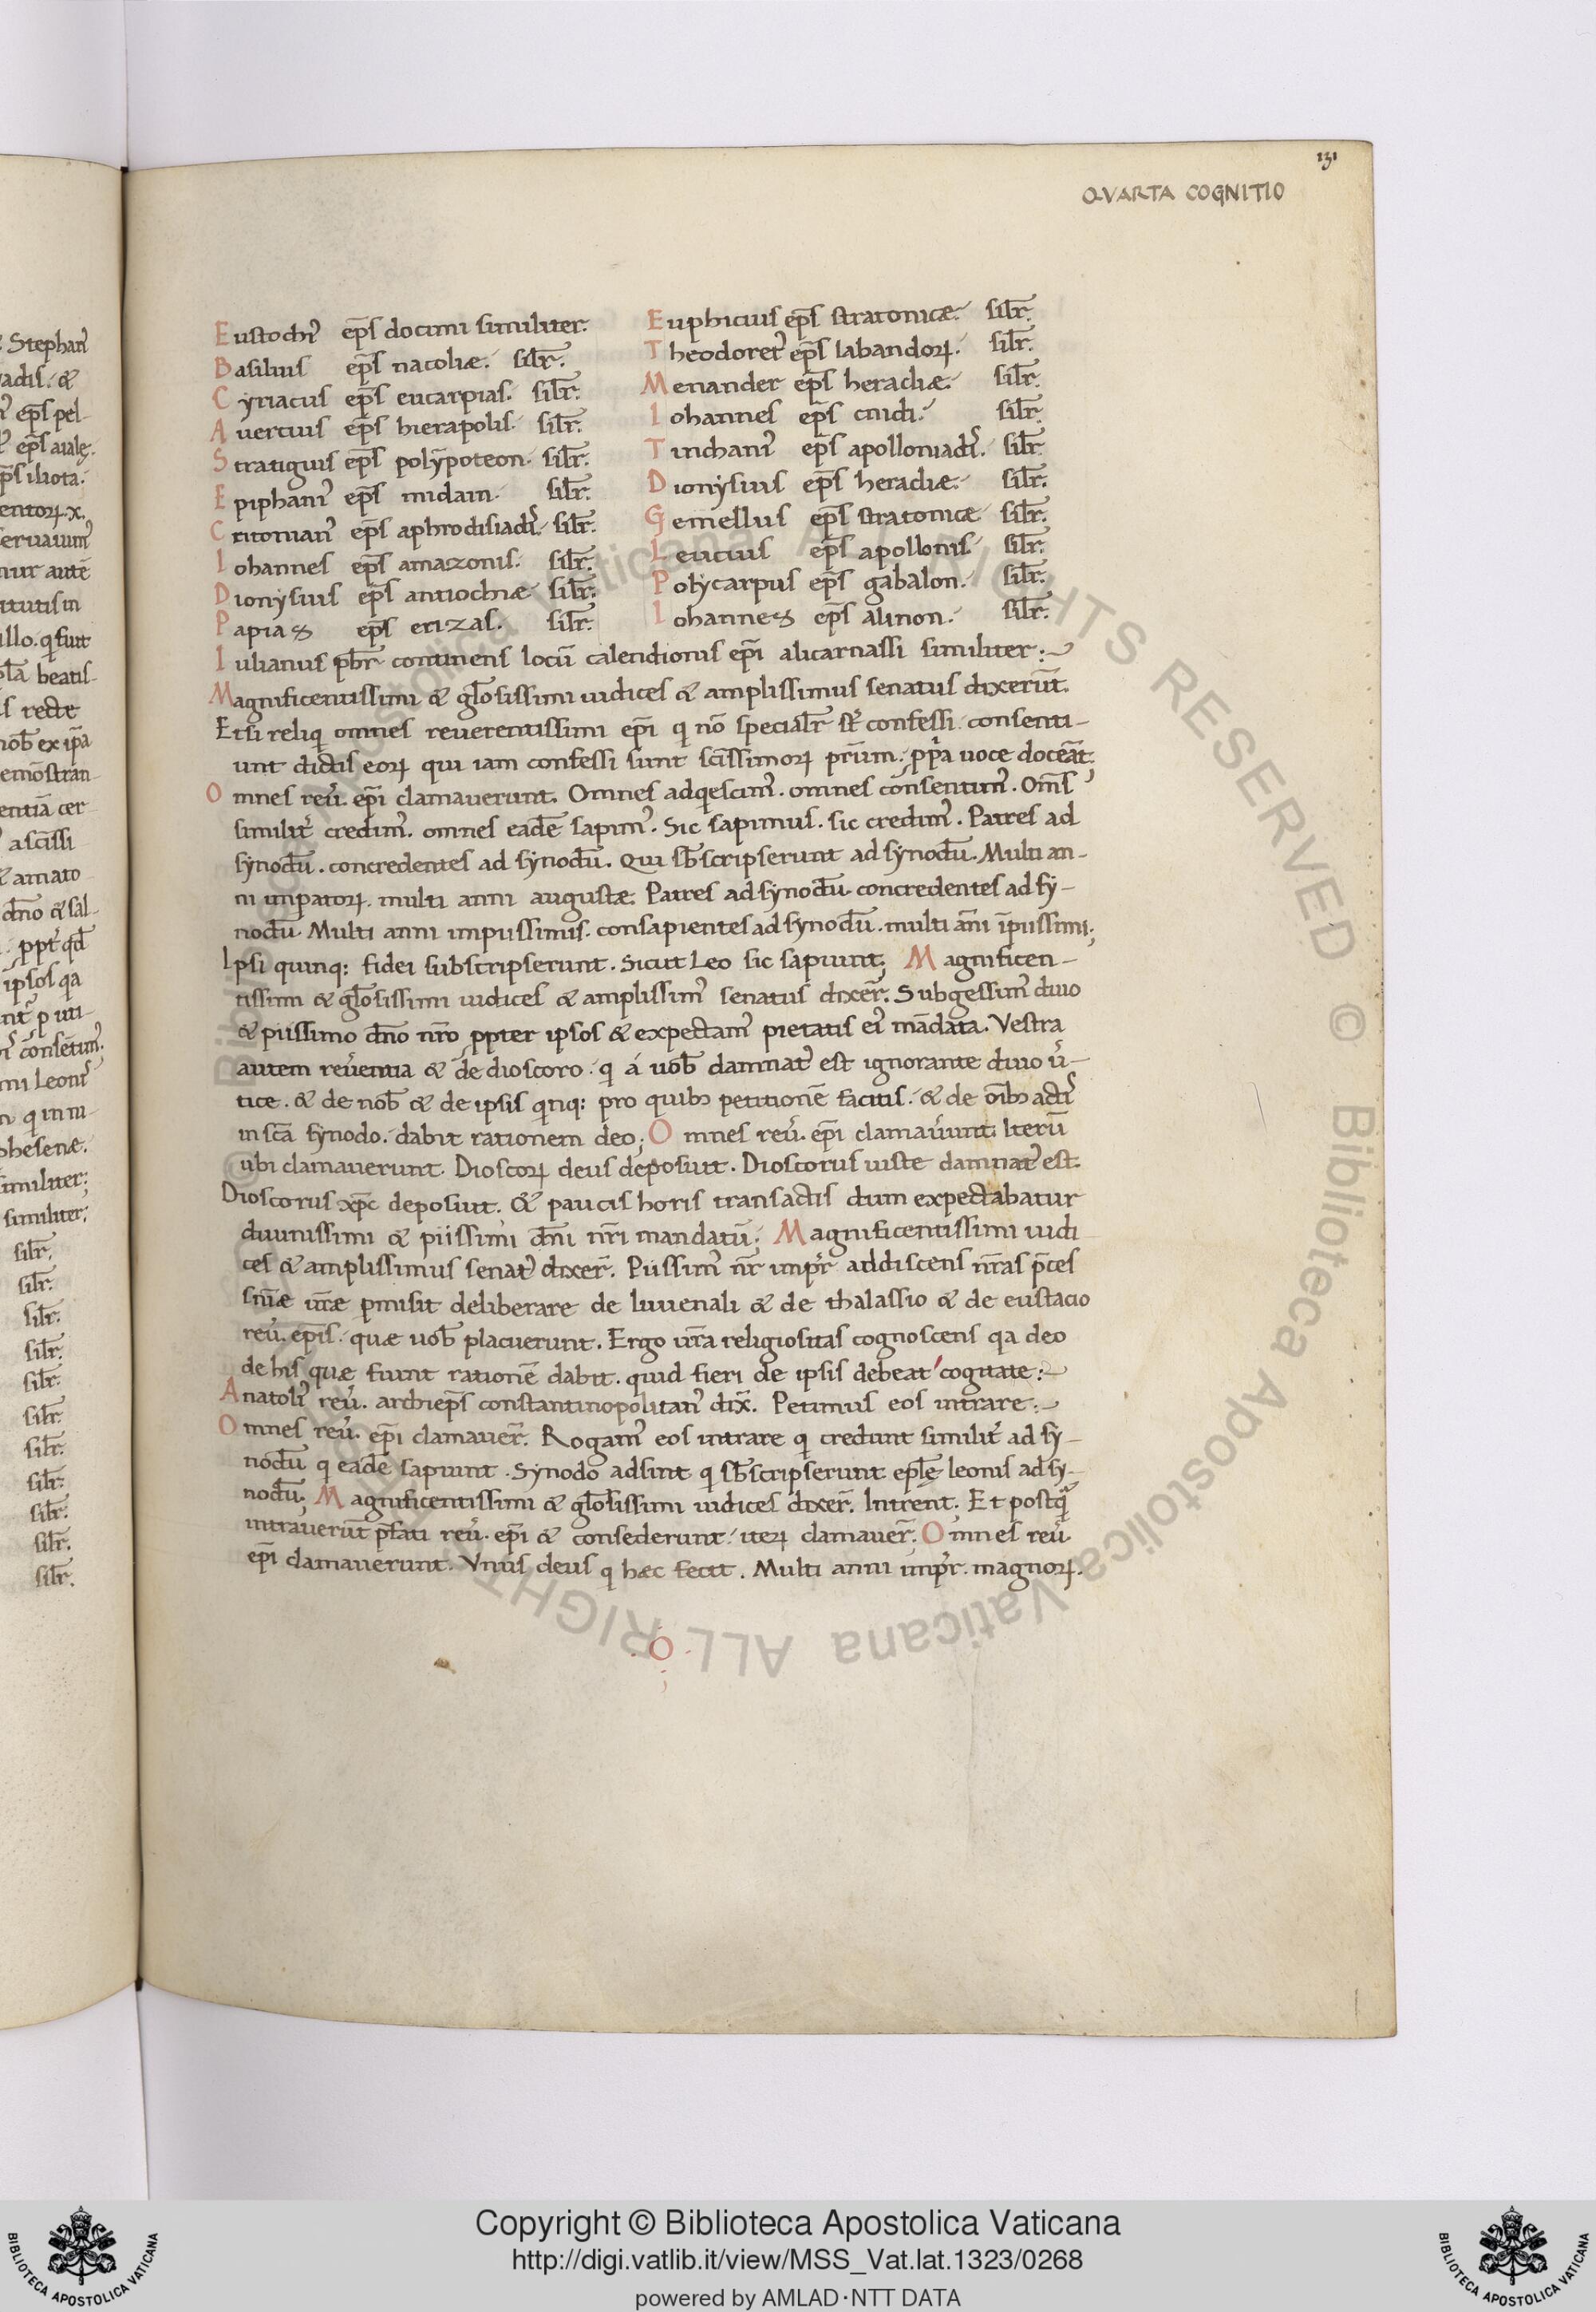 131
QVARTA COGNITIO
Eustochi᾽ ep̄s docimi similiter.
Basilius ep̄s nacoliæ. sil̄r.
Cyriacus ep̄s eucarpias. sil̄r.
Avercius ep̄s hierapolis. sil̄r.
Stratiguis ep̄s polypoteon. sil̄r.
Epiphani᾽ ep̄s midain. sil̄r.
Critonian᾽ ep̄s aphrodisiad᾽. sil̄r.
Iohannes ep̄s amazonis. sil̄r.
Dionysius ep̄s antiochiæ sil̄r.
Papias ep̄s erizas. sil̄r.
Euphicius ep̄s stratonicæ. sil̄r.
Theodoret᾽ ep̄s labandoꝝ. sil̄r.
Menander ep̄s heracliæ. sil̄r.
Iohannes ep̄s cnidi. sil̄r.
Tinchani᾽ ep̄s apolloniad᾽. sil̄r.
Dionysius ep̄s heracliæ. sil̄r.
Gemellus ep̄s stratonicæ sil̄r.
Leucius ep̄s apollonis. sil̄r.
Polycarpus ep̄s gabalon. sil̄r.
Iohannes ep̄s alinon. sil̄r.
Iulianus pb̄r continens locū calendionis ep̄i alicarnassi similiter:
Magnificentissimi & gl̄osissimi iudices & amplissimus senatus dixerūt.
Etsi reliqi omnes reuerentissimi ep̄i qi nō special̄r st᾽ confessi. consenti-
unt dictis eoꝝ qui iam confessi sunt sc̄issimoꝝ pr̄um. pp̄a uoce doceāt.
Omnes reu᾽. ep̄i clamauerunt. Omnes adqescim᾽. omnes consentim᾽. Om̄s
similit᾽ credim᾽. omnes eadē sapim᾽. Sic sapimus. sic credim᾽. Patres ad
synodū. concredentes ad synodū. Qui sb̄scripserunt ad synodū. Multi an-
ni imperatoꝝ. multi anni augustæ. Patres ad synodū. concredentes ad sy-
nodū. Multi anni impiissimis. consapientes ad synodū. multi an̄i īpiissimi;
Ipsi quinq: fidei subscripserunt. Sicut Leo sic sapiunt; Magnificen-
tissimi & gl̄osissimi iudices & amplissim᾽ senatus dixer̄. Subgessim᾽ diuo
& piissimo dn̄o nr̄o ppter ipsos & expectam᾽ pietatis ei᾽ mādata. Vestra
autem reu᾽entia & de dioscoro. qi á uob̄ damnat᾽ est ignorante diuo u᾽-
tice. & de nob̄ & de ipsis qinq: pro quibꝫ petitionē facitis. & de oībꝫ act᾽
in sc̄a synodo. dabit rationem deo; Omnes reu᾽. ep̄i clamau᾽unt. Iterū
ubi clamauerunt. Dioscoꝝ deus deposuit. Dioscorus iuste damnat᾽ est.
Dioscorus xp̄c deposuit. & paucis horis transactis dum expectabatur
diuinissimi & piissimi dn̄i nr̄i mandatū; Magnificentissimi iudi
ces & amplissimus senat᾽ dixer̄. Piissim᾽ nr̄ imp᾽r addiscens nr̄as p̄ces
sn̄iæ ur̄æ pmisit deliberare de Iuuenali & de thalassio & de eustacio
reu᾽. ep̄is. quæ uob̄ placuerunt. Ergo ur̄a religiositas cognoscens qa deo
de his quæ fiunt rationē dabit. quid fieri de ipsis debeat cogitate:
Anatoli᾽ reu᾽. archiep̄s constantinopolitan᾽ dix̄. Petimus eos intrare:
Omnes reu᾽. ep̄i clamauer̄. Rogam᾽ eos intrare qi credunt similit᾽ ad sy-
nodū qi eadē sapiunt. Synodo adsint qi sb̄scripserunt epl̄ę leonis ad sy-
nodū; Magnificentissimi & gl̄osissimi iudices dixer̄. Intrent. Et postq̄
intrauerūt p̄fati reu᾽. ep̄i & consederunt. iteꝝ clamauer̄. Omnes reu᾽
ep̄i clamauerunt. Vnus deus qi hæc fecit. Multi anni imp᾽r. magnoꝝ.
Copyright © Biblioteca Apostolica Vaticana
http://digi.vatlib.it/view/MSS_Vat.lat.1323/0268
powered by AMLAD·NTT DATA